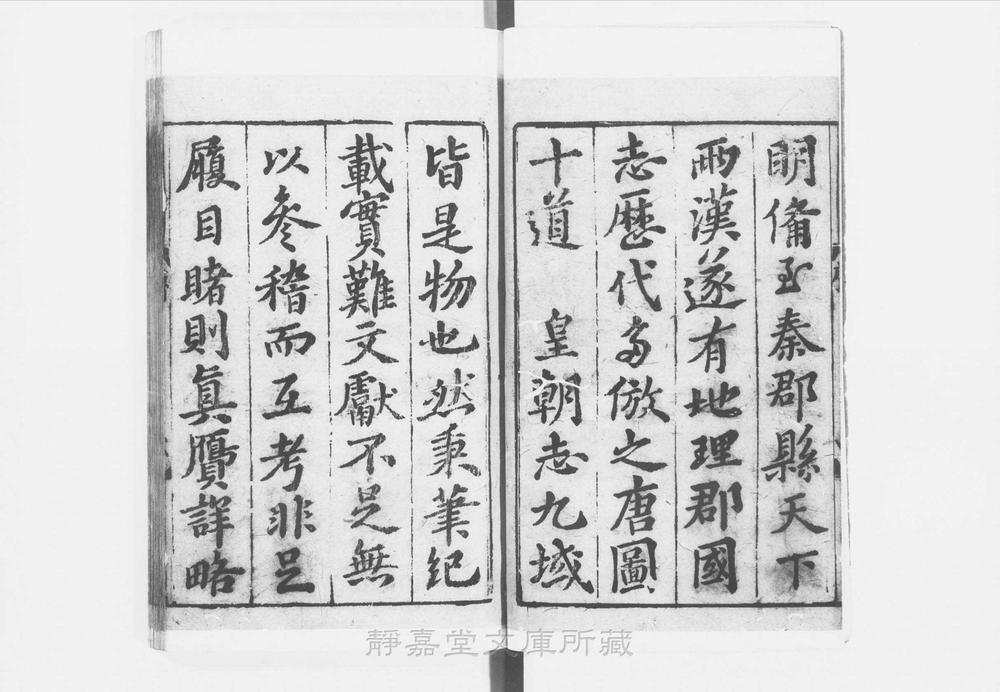 明備至秦郡縣天下
兩漢遂有地理郡國
志歷代多倣之唐圖
十道　皇朝志九域
皆是物也然秉筆紀
載實難文獻不足無
以參稽而互考非足
履目睹則眞贗詳略
靜嘉堂文庫所藏